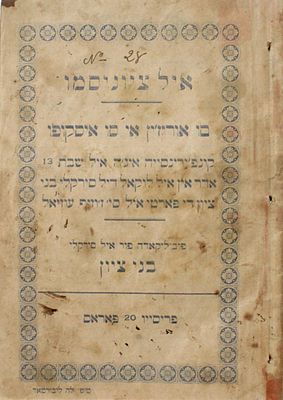 No 28
איל ציוניסמו
סו אוריז׳ין אי סו אוסקופו
קונפ׳ירינסייה איגה איל שבת 13
אדר אין איל לוקאל דיל סירקלי בני
ציון די פארטי איל סי׳ יוסף עוזיאל
פוב׳ליקאדה פור איל סירקלי
בני ציון
פריסייו 20 פאראס
טיפ׳ לה ליבורטאד